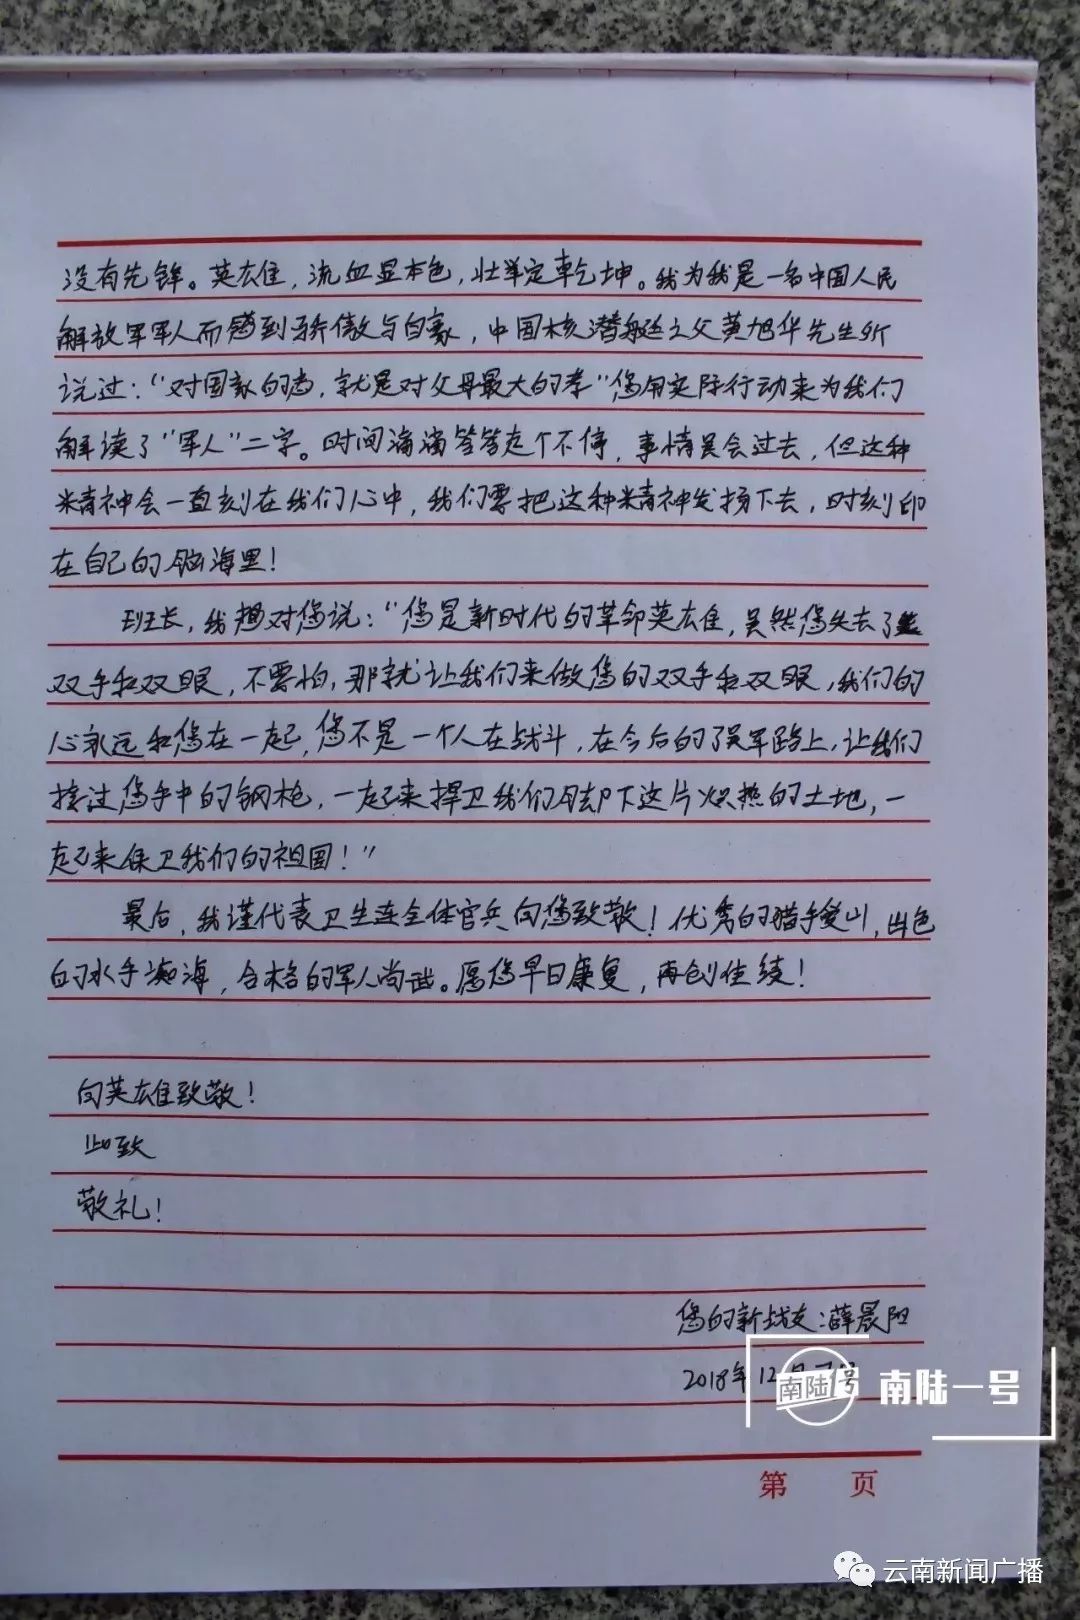 没有先锋。英雄，流血显本色，壮举定乾坤。我为我是一名中国人民
解放军军人而感到骄傲与自豪，中国核潜艇之父黄旭华先生所
说过：“对国家的忠，就是对父母最大的孝”您用实际行动来为我们
解读了“军人”二字。时间滴滴答答走个不停，事情虽会过去，但这种
精神会一直刻在我们心中，我们要把这种精神发扬下去，时刻印
在自己的脑海里！
班长，我想对您说：“您是新时代的革命英雄，虽然您失去了
双手和双眼，不要怕，那就让我们来做您的双手和双眼，我们的
心永远和您在一起，您不是一个人在战斗，在今后的强军路上，让我们
接过您手中的钢枪，一起来捍卫我们脚下这片炽热的土地，一
起来保卫我们的祖国！”
最后，我谨代表卫生连全体官兵向您致敬！优秀的猎手爱山，出色
的水手痴海，合格的军人尚武。愿您早日康复，再创佳绩！
向英雄致敬！
此致
敬礼！
您的新战友：薛晨阳
2018年12月 号
南陆1号 南陆一号
第 页
云南新闻广播